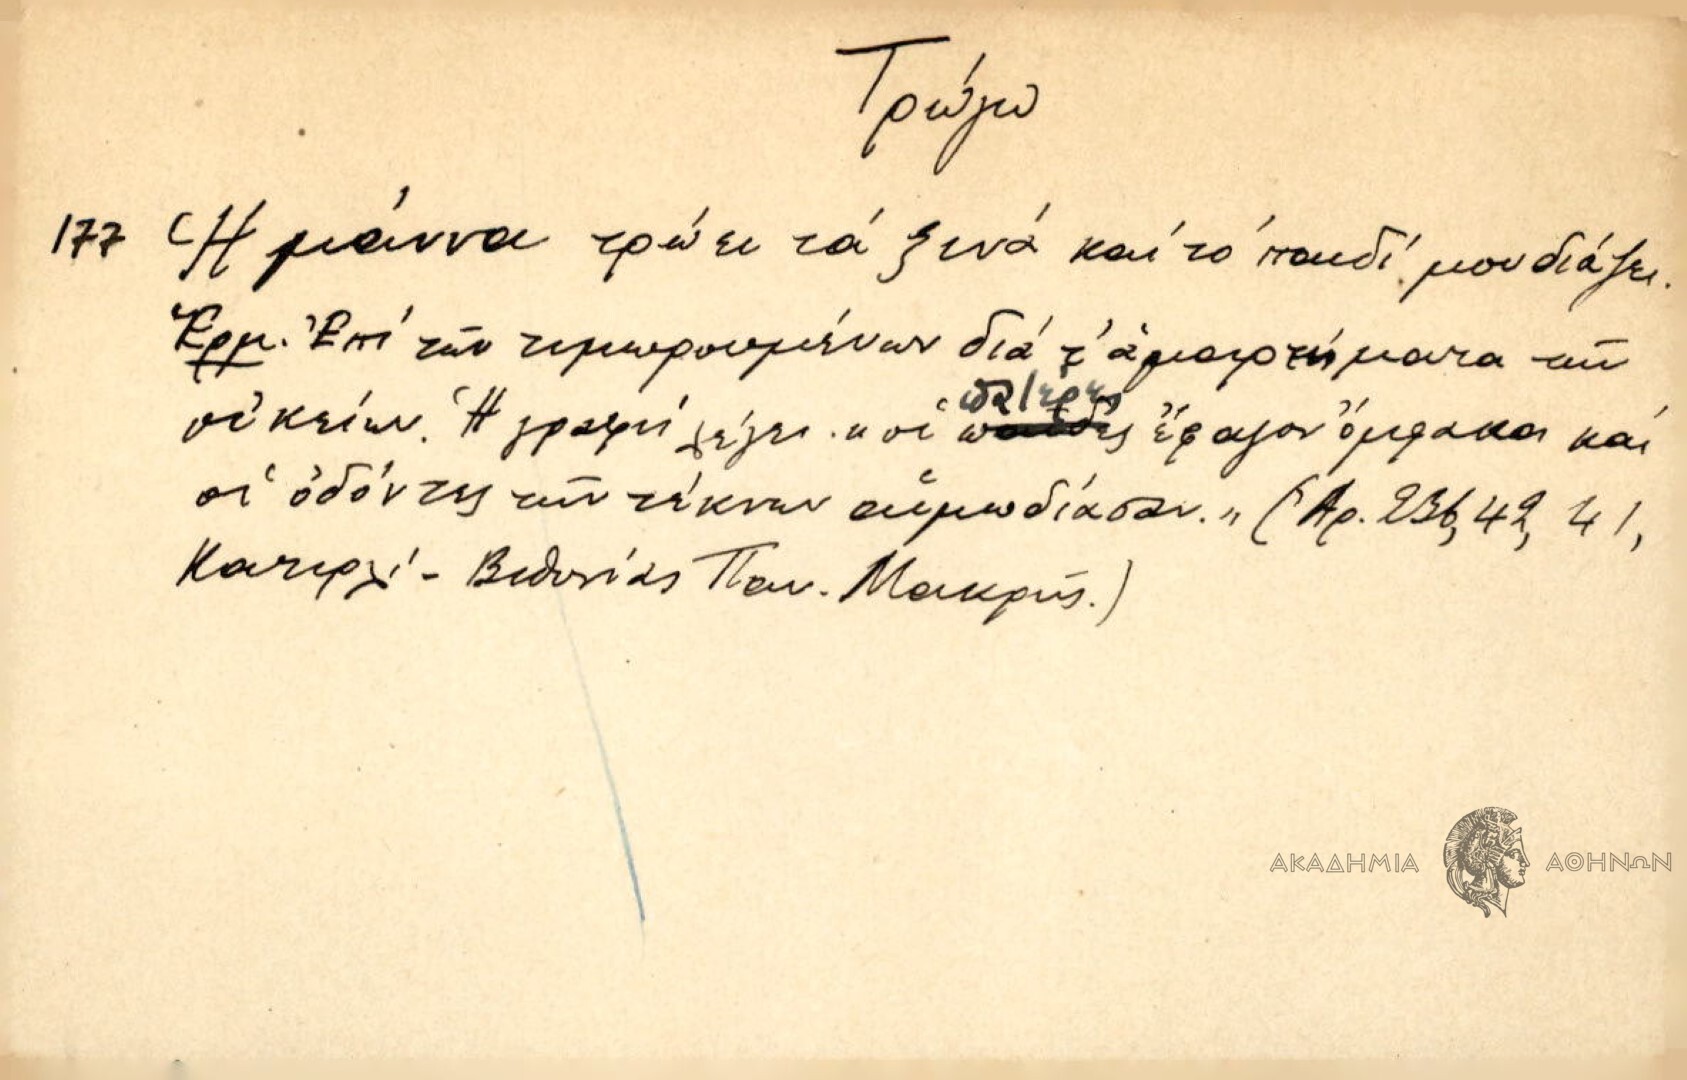 Τρώγω
177 Ἡ μάννα τρώει τά ξινά καί τό παιδί μουδιάζει.
Ἑρμ. Ἐπί τῶν τιμωρουμένων διά τ' ἁμαρτήματα τῶν
πατέρες
οἰκείων. Ἡ γραφή λέγει "οἱ παῖδες ἔφαγον ὄμφακα καί
οἱ ὀδόντες τῶν τέκνων αἱμωδίασαν." (Ἀρ. 236, 42, 41,
Κατιρλί - Βιθυνίας Παν. Μακρῆς.)
ΑΚΑΔΗΜΙΑ ΑΘΗΝΩΝ